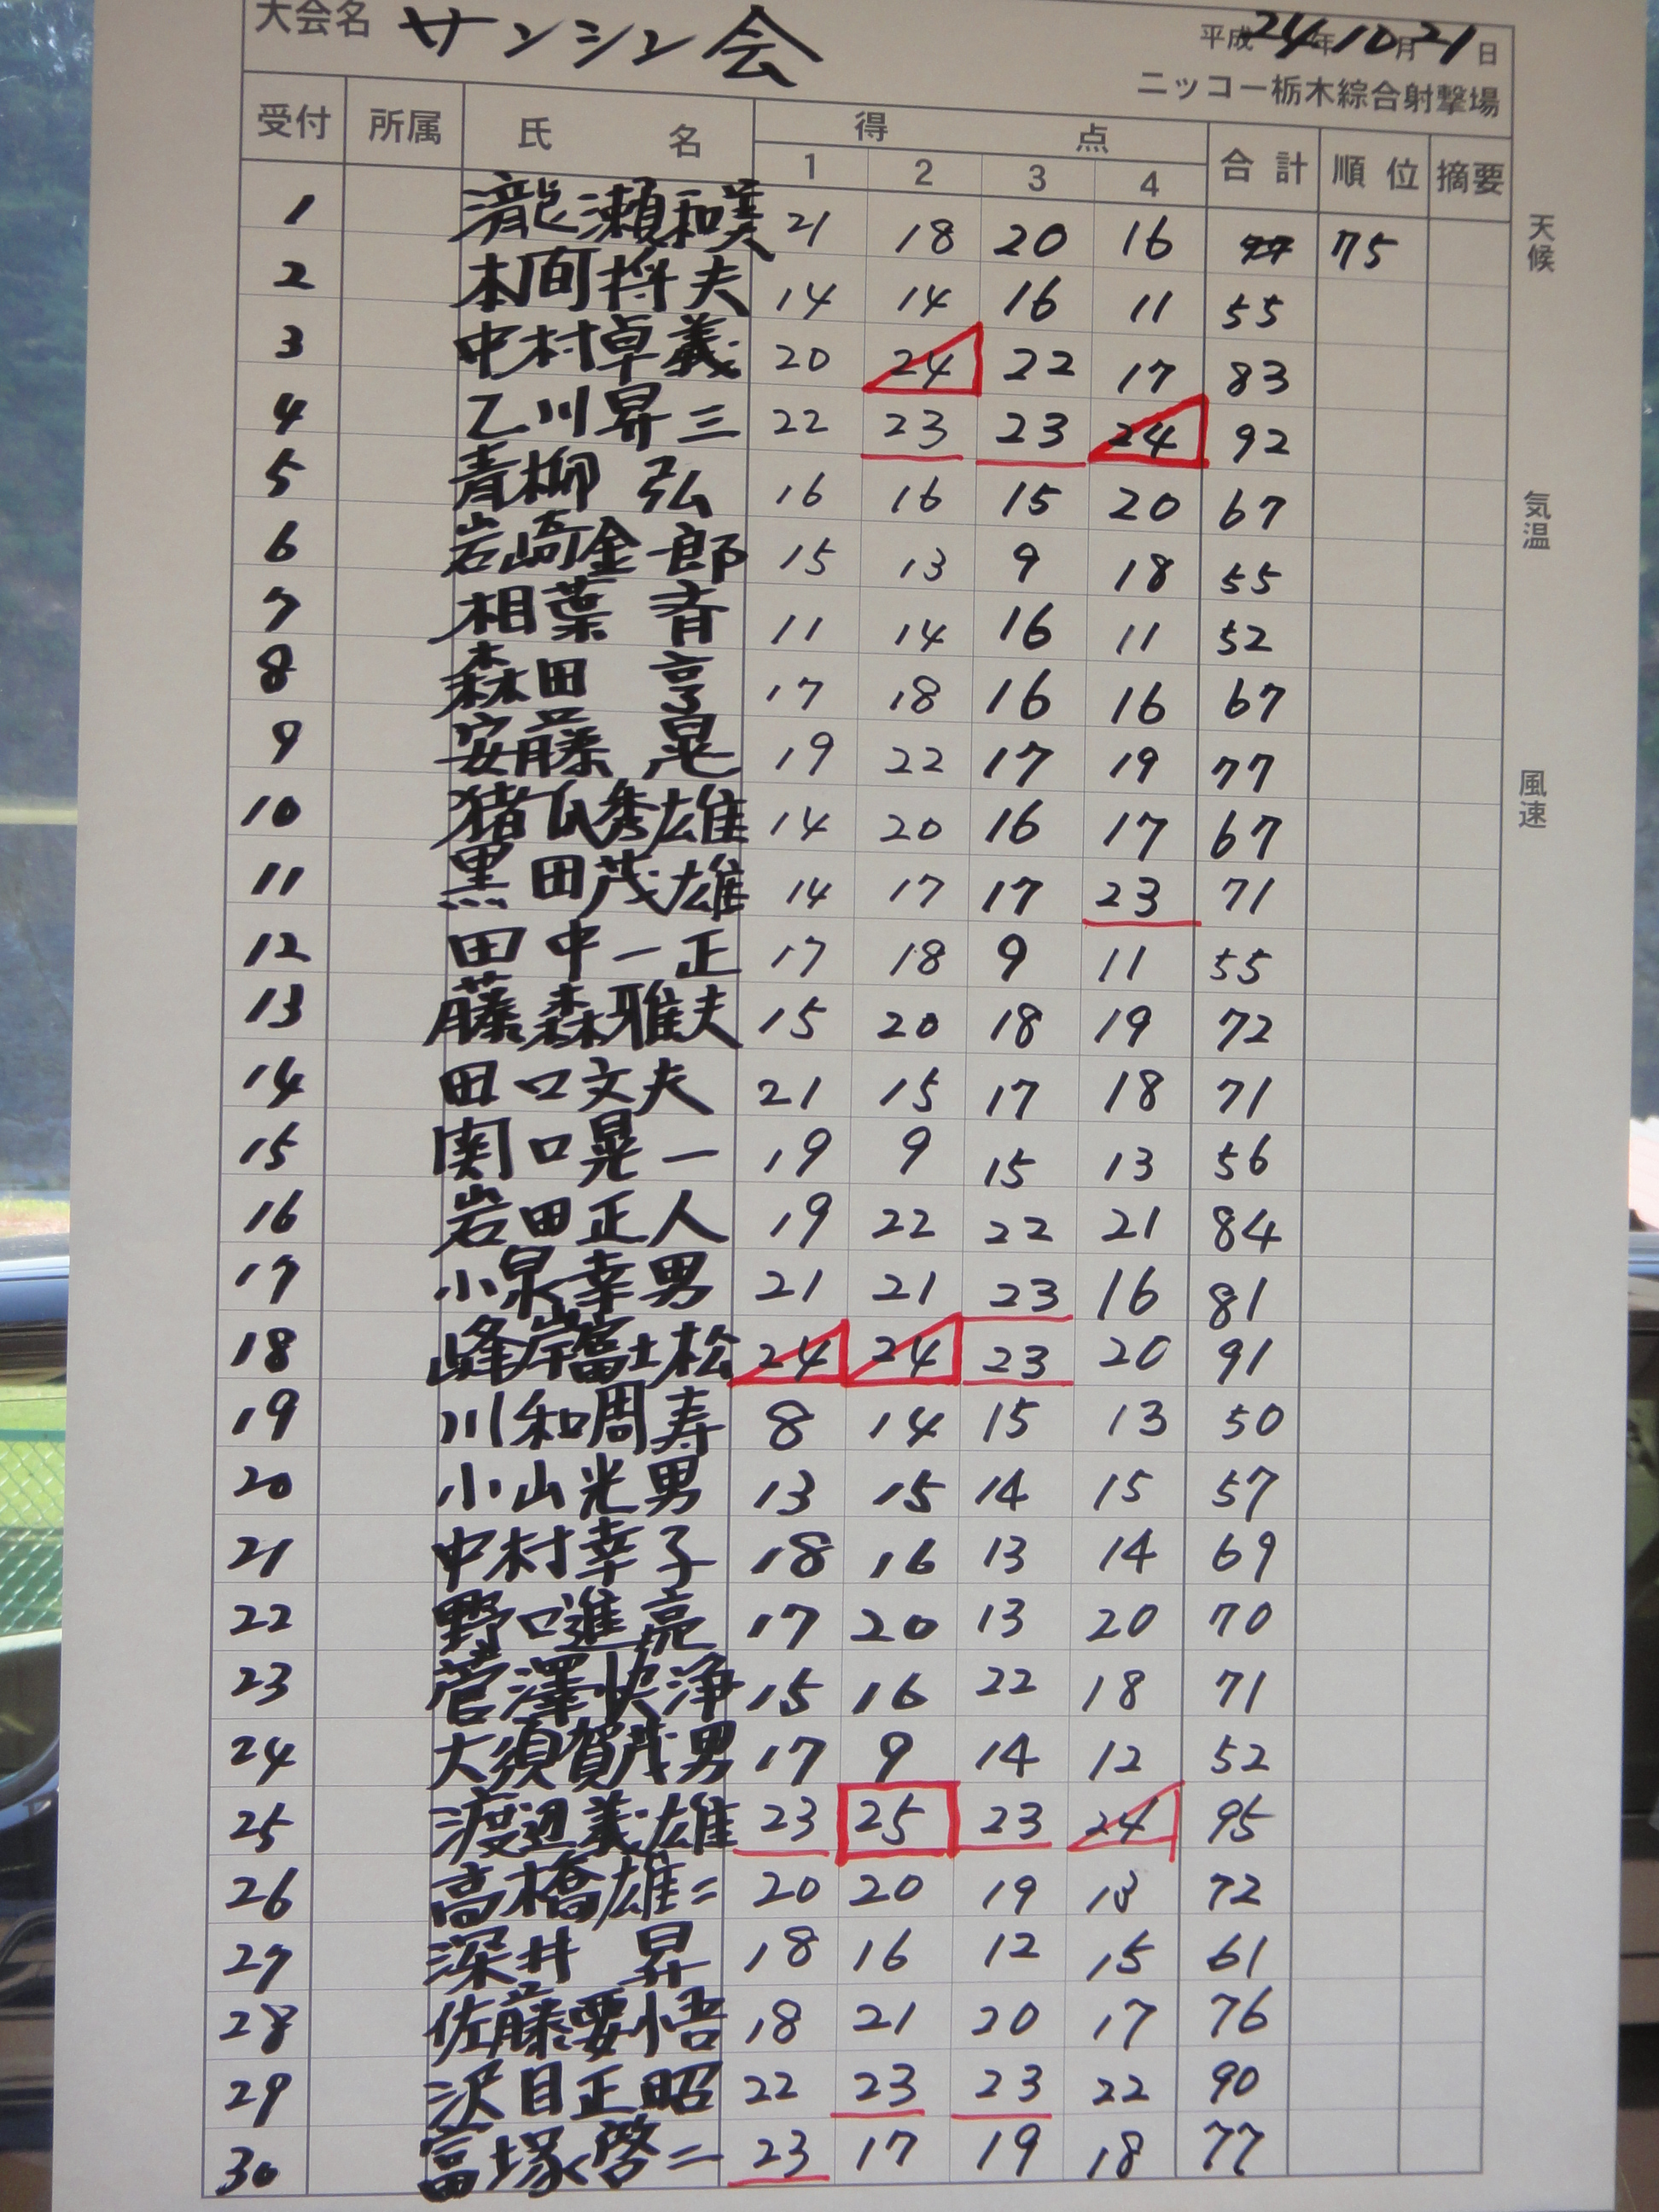 大会名 サンシン会 平成24年10月21日
ニッコー栃木綜合射撃場
受付 所属 氏名 得点 合計 順位 摘要
1 2 3 4
1 瀧瀬和美 21 18 20 16 75
2 本間将夫 14 14 16 11 55
3 中村卓義 20 24 22 17 83
4 乙川昇三 22 23 23 24 92
5 青柳 弘 16 16 15 20 67
6 岩崎金一郎 15 13 9 18 55
7 相葉 斉 11 14 16 11 52
8 森田 亨 17 18 16 16 67
9 安藤 晃 19 22 17 19 77
10 猪瓜秀雄 14 20 16 17 67
11 黒田茂雄 14 17 17 23 71
12 田中一正 17 18 9 11 55
13 藤森雅夫 15 20 18 19 72
14 田口文夫 21 15 17 18 71
15 関口晃一 19 9 15 13 56
16 岩田正人 19 22 22 21 84
17 小泉幸男 21 21 23 16 81
18 峰岸富士松 24 24 23 20 91
19 川和周寿 8 14 15 13 50
20 小山光男 13 15 14 15 57
21 中村幸子 18 16 13 14 69
22 野口進亮 17 20 13 20 70
23 菅澤快浄 15 16 22 18 71
24 大須賀茂男 17 9 14 12 52
25 渡辺義雄 23 25 23 24 95
26 高橋雄二 20 20 19 13 72
27 深井 昇 18 16 12 15 61
28 佐藤要悟 18 21 20 17 76
29 沢目正昭 22 23 23 22 90
30 富塚啓二 23 17 19 18 77
天候
気温
風速